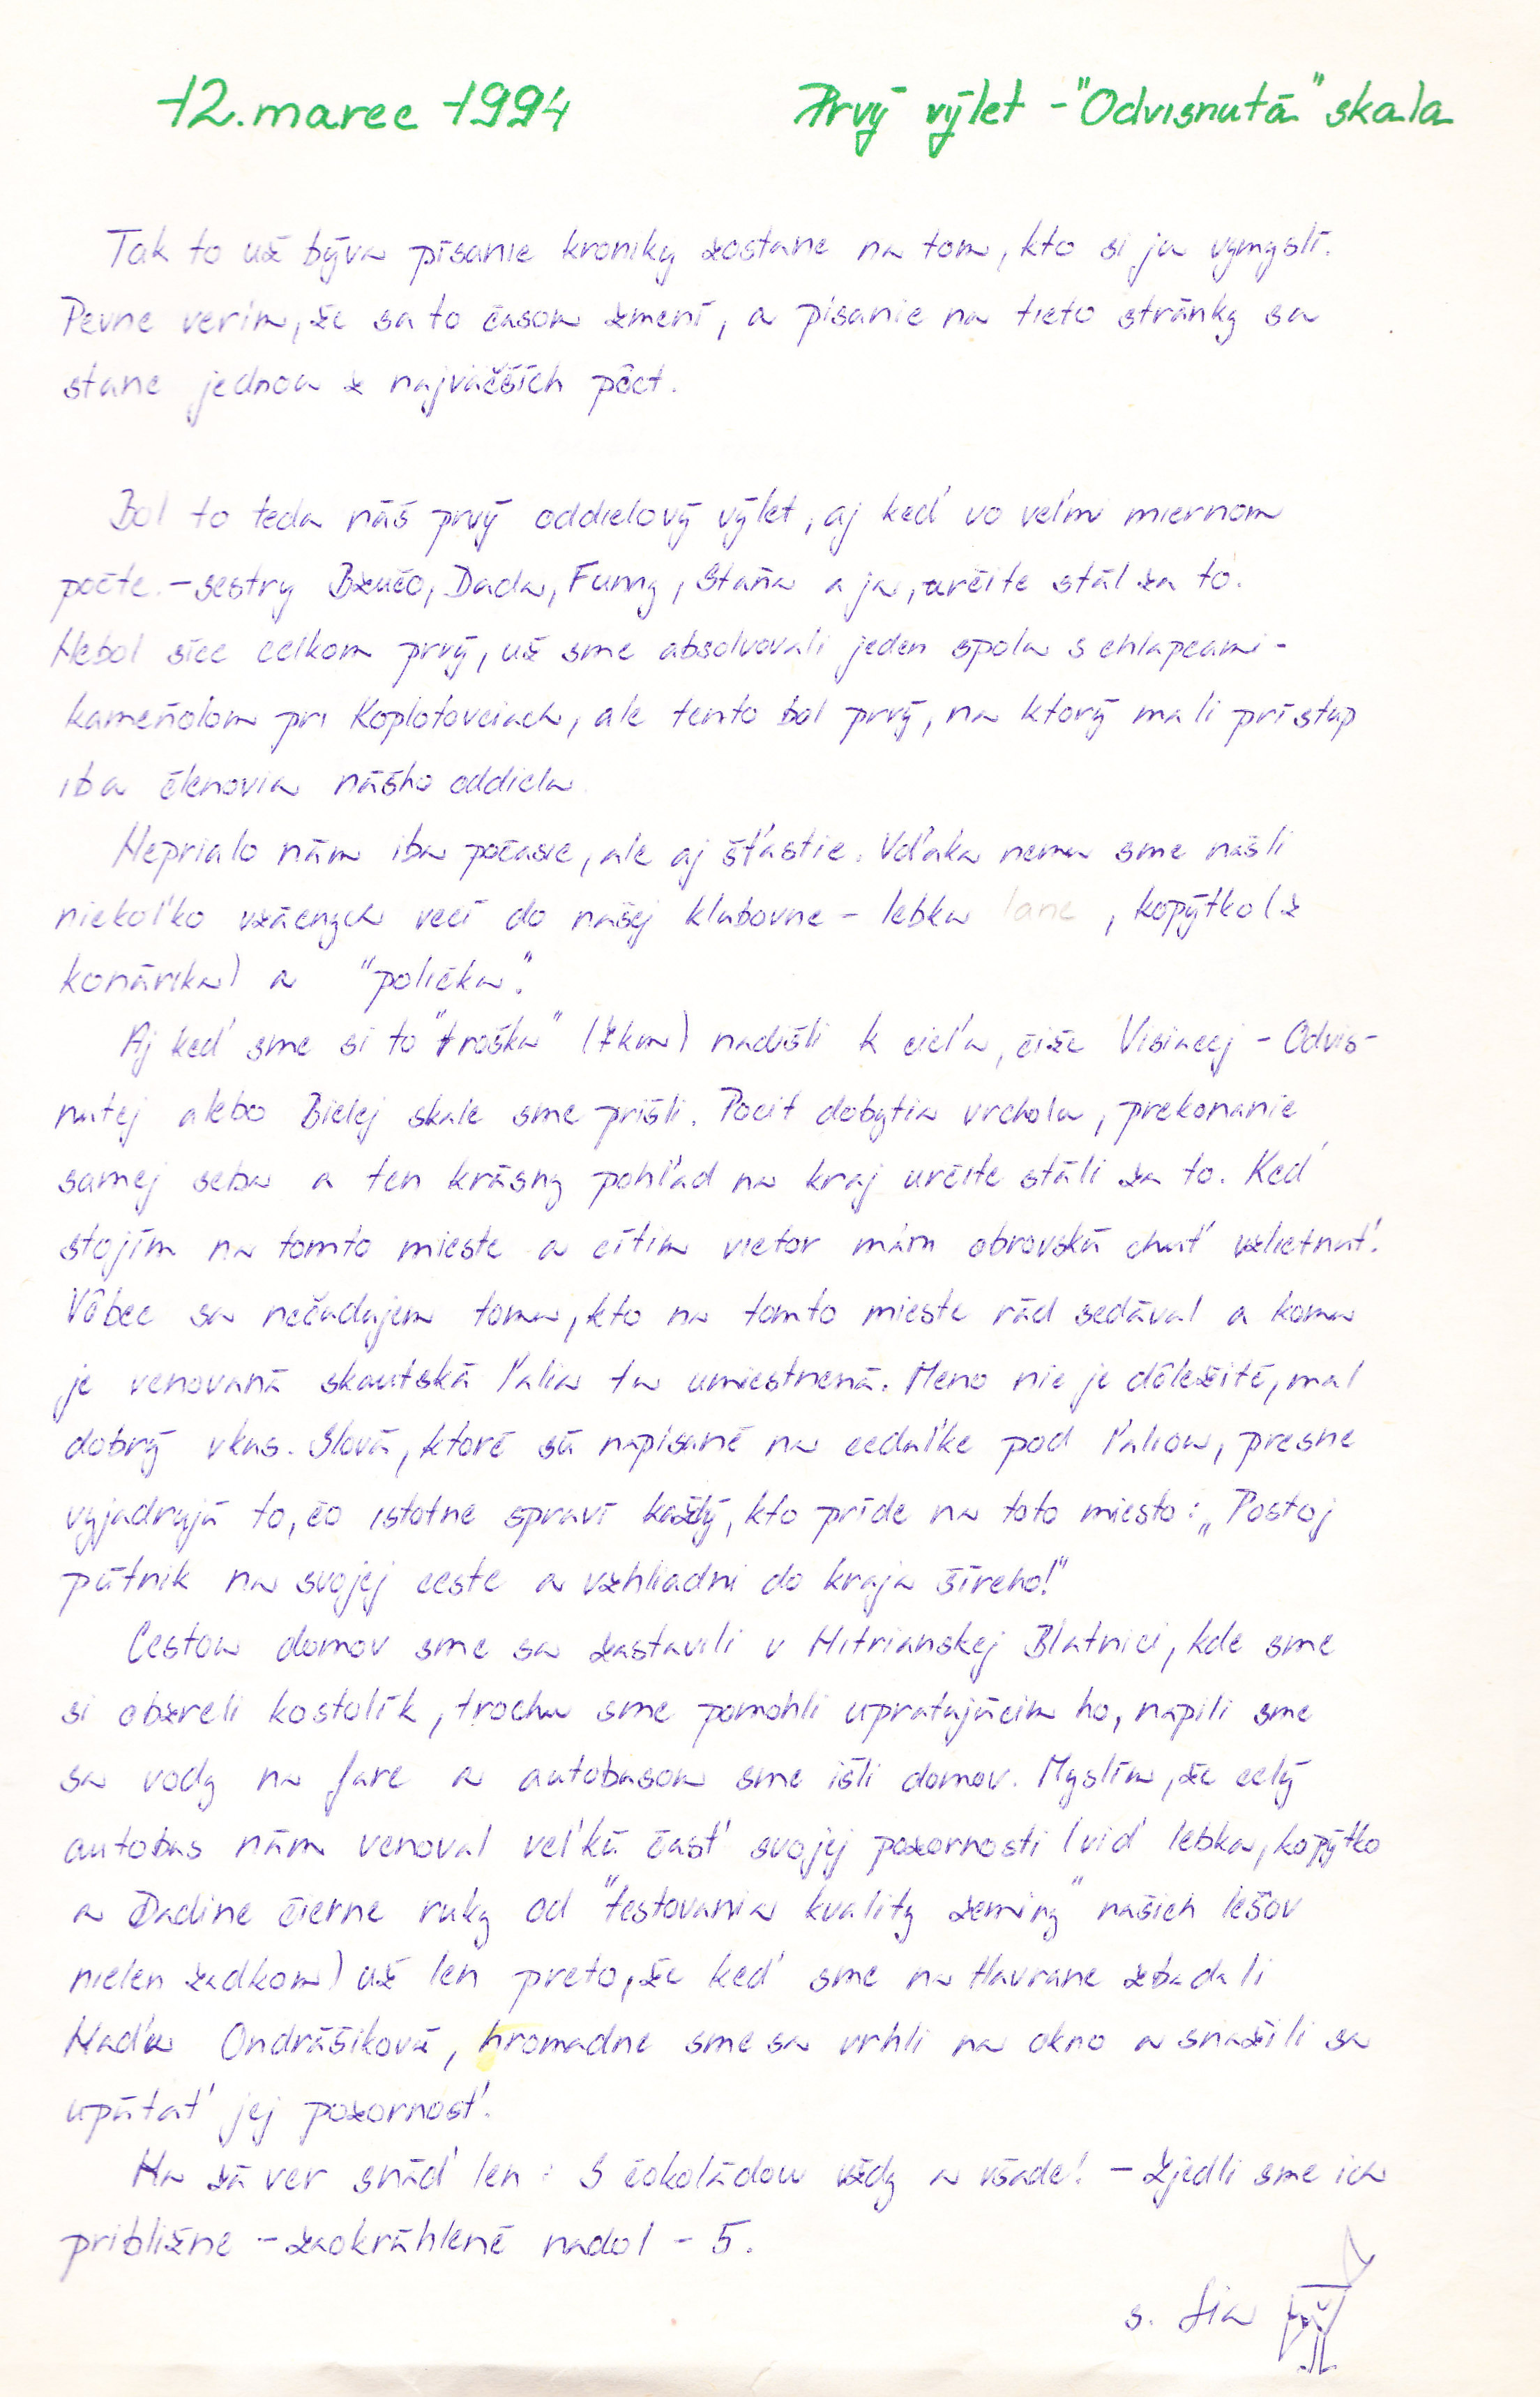 12. marec 1994 Prvý výlet - "Odvisnutá" skala
Tak to už býva písanie kroniky zostane na tom, kto si ju vymyslí.
Pevne verím, že sa to časom zmení, a písanie na tieto stránky sa
stane jednou z najväčších pôct.
Bol to teda náš prvý oddielový výlet, aj keď vo veľmi miernom
počte. - sestry Bzučo, Dada, Funny, Staňa a ja, určite stál za to.
Nebol síce celkom prvý, už sme absolvovali jeden spolu s chlapcami -
kameňolom pri Koplotovciach, ale tento bol prvý, na ktorý mali prístup
iba členovia nášho oddielu.
Neprialo nám iba počasie, ale aj šťastie. Vďaka nemu sme našli
niekoľko vzácnych vecí do našej klubovne - lebku lane, kopýtko (z
konárika) a "poličku".
Aj keď sme si to "trošku" (7km) nadišli k cieľu, čiže Visiacej - Odvis-
nutej alebo Bielej skale sme prišli. Pocit dobytia vrcholu, prekonanie
samej seba a ten krásny pohľad na kraj určite stáli za to. Keď
stojím na tomto mieste a cítim vietor mám obrovskú chuť vzlietnuť.
Vôbec sa nečudujem tomu, kto na tomto mieste rád sedával a komu
je venovaná skautská ľalia tu umiestnená. Meno nie je dôležité, mal
dobrý vkus. Slová, ktoré sú napísané na ceduľke pod ľaliou, presne
vyjadrujú to, čo istotne spraví každý, kto príde na toto miesto: „Postoj
pútnik na svojej ceste a vzhliadni do kraja šíreho!"
Cestou domov sme sa zastavili v Nitrianskej Blatnici, kde sme
si obzreli kostolík, trochu sme pomohli upratujúcim ho, napili sme
sa vody na fare a autobusom sme išli domov. Myslím, že celý
autobus nám venoval veľkú časť svojej pozornosti (viď lebka, kopýtko
a Dadine čierne ruky od "testovania kvality zeminy" našich lešov
nielen zadkom) už len preto, že keď sme na Havrane zbadali
Naďu Ondrášikovú, hromadne sme sa vrhli na okno a snažili sa
upútať jej pozornosť.
Na záver snáď len: S čokoládou vždy a všade! - Zjedli sme ich
približne - zaokrúhlené nadol - 5.
s. Lia